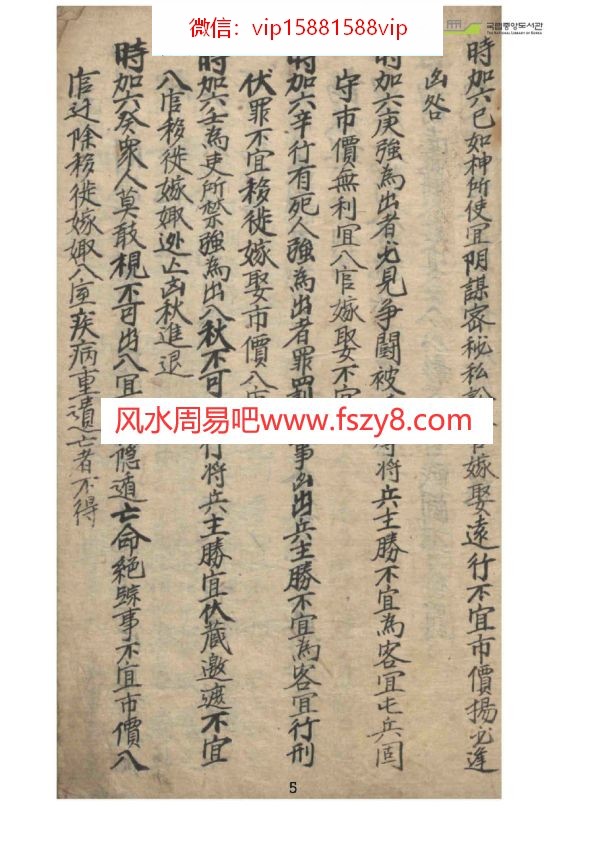 微信：vip15881588vip
국립중앙도서관
THE NATIONAL LIBRARY OF KOREA
時加六己如神所使宜阴謀密秘私訟官嫁娶遠行不宜市價揚必逢
凶咎
時加六庚強為出者必見爭鬪被將兵主勝不宜為客宜屯兵固
守市價無利宜入官嫁娶不宜
時加六辛行有死人強為出者罪罰事凶出兵主勝不宜為客宜行刑
伏罪不宜移徙嫁娶市價入官
時加六壬為吏所禁強為出入秋不可行將兵主勝宜伏藏邀遮不宜
入官移徙嫁娵逊亾凶秋進退
時加六癸衆人莫敢梘不可出入宜隱遁亡命絕跡事不宜市價入
官迁除移徙嫁娵入室疾病重遺亡者不得
风水周易吧www.fszy8.com
5